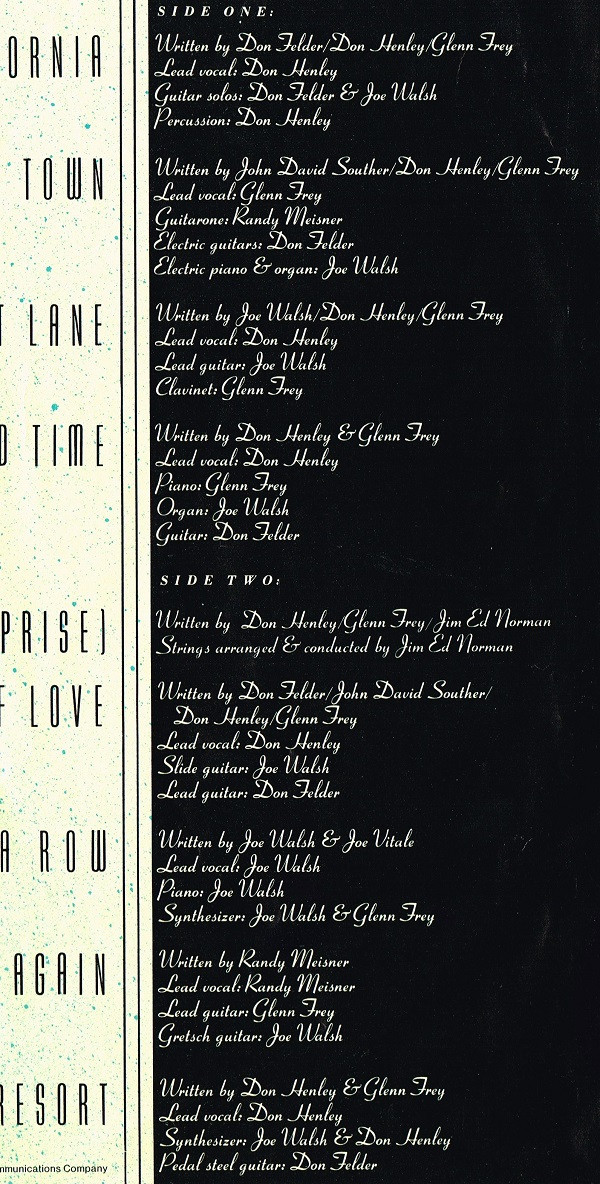 SIDE ONE:
ORNIA
Written by Don Felder/Don Henley/Glenn Frey
Lead vocal: Don Henley
Guitar solos: Don Felder & Joe Walsh
Percussion: Don Henley
TOWN
Written by John David Souther/Don Henley/Glenn Frey
Lead vocal: Glenn Frey
Guitarone: Randy Meisner
Electric guitars: Don Felder
Electric piano & organ: Joe Walsh
T LANE
Written by Joe Walsh/Don Henley/Glenn Frey
Lead vocal: Don Henley
Lead guitar: Joe Walsh
Clavinet: Glenn Frey
D TIME
Written by Don Henley & Glenn Frey
Lead vocal: Don Henley
Piano: Glenn Frey
Organ: Joe Walsh
Guitar: Don Felder
SIDE TWO:
PRISE)
Written by Don Henley/Glenn Frey/Jim Ed Norman
Strings arranged & conducted by Jim Ed Norman
F LOVE
Written by Don Felder/John David Souther/
Don Henley/Glenn Frey
Lead vocal: Don Henley
Slide guitar: Joe Walsh
Lead guitar: Don Felder
A ROW
Written by Joe Walsh & Joe Vitale
Lead vocal: Joe Walsh
Piano: Joe Walsh
Synthesizer: Joe Walsh & Glenn Frey
AGAIN
Written by Randy Meisner
Lead vocal: Randy Meisner
Lead guitar: Glenn Frey
Gretsch guitar: Joe Walsh
RESORT
Written by Don Henley & Glenn Frey
Lead vocal: Don Henley
Synthesizer: Joe Walsh & Don Henley
Pedal steel guitar: Don Felder
mmunications Company